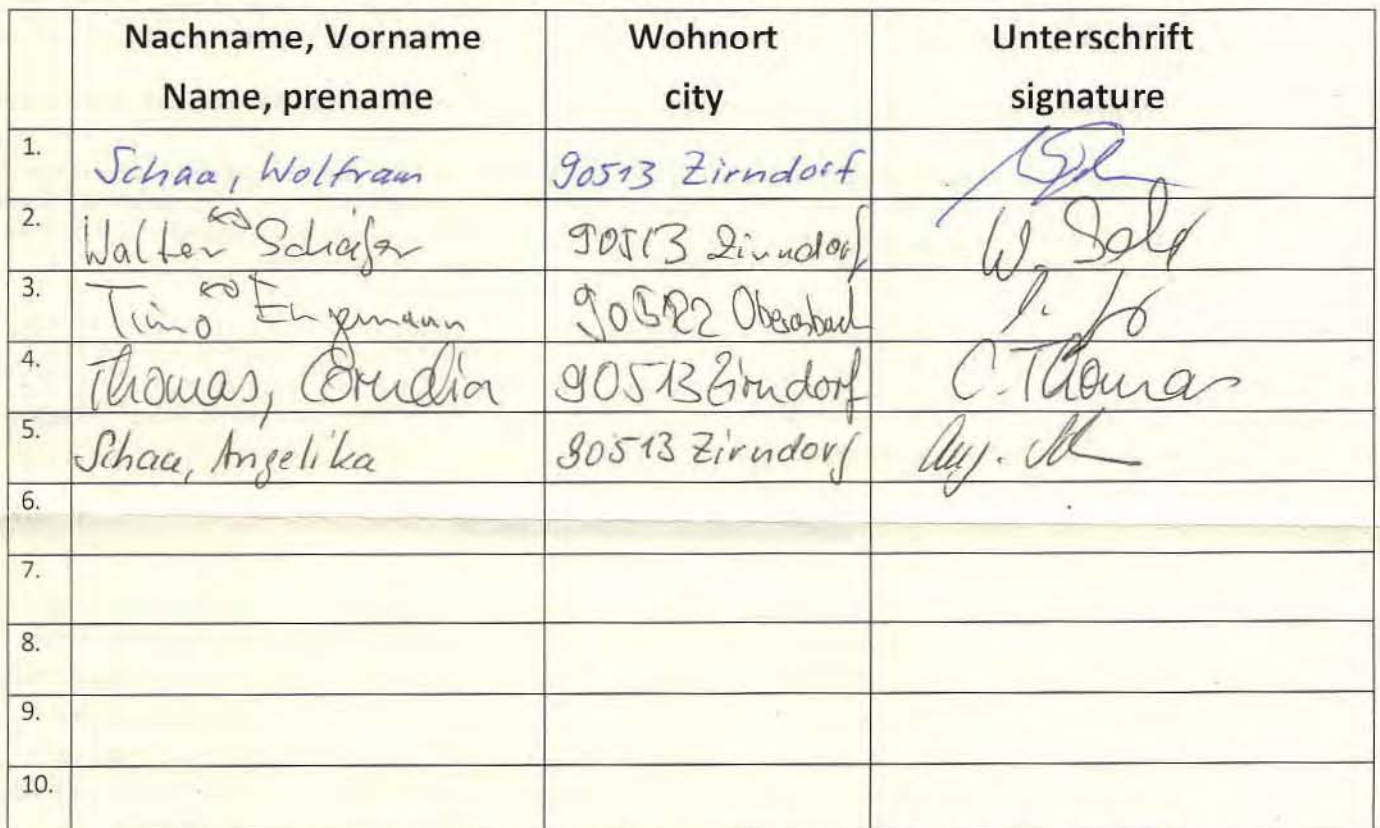 Nachname, Vorname Wohnort Unterschrift
Name, prename city signature
1. Schaa, Wolfram 90513 Zirndorf
2. Walter ⇔ Schäfer 90513 Zirndorf W.
3. Timo ⇔ Engemann 90522 Oberasbach
4. Thomas, Cornelia 90513 Zirndorf C. Thomas
5. Schaa, Angelika 90513 Zirndorf Ang.
6.
7.
8.
9.
10.